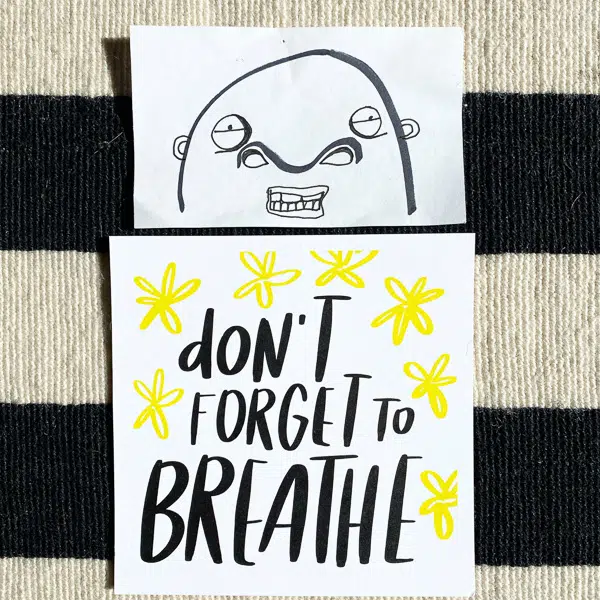 don't
FORGET TO
BREATHE